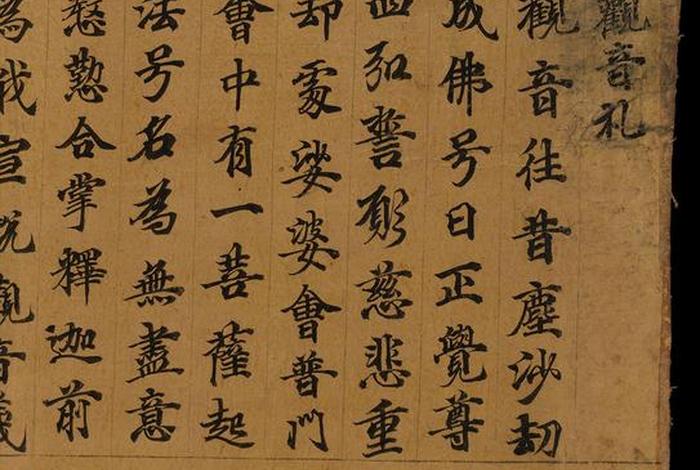 觀音礼
觀音往昔塵沙劫
成佛号曰正覺尊
四弘誓願慈悲重
却處娑婆會普門
會中有一菩薩起
法号名為無盡意
慇懃合掌釋迦前
為我宣說觀音